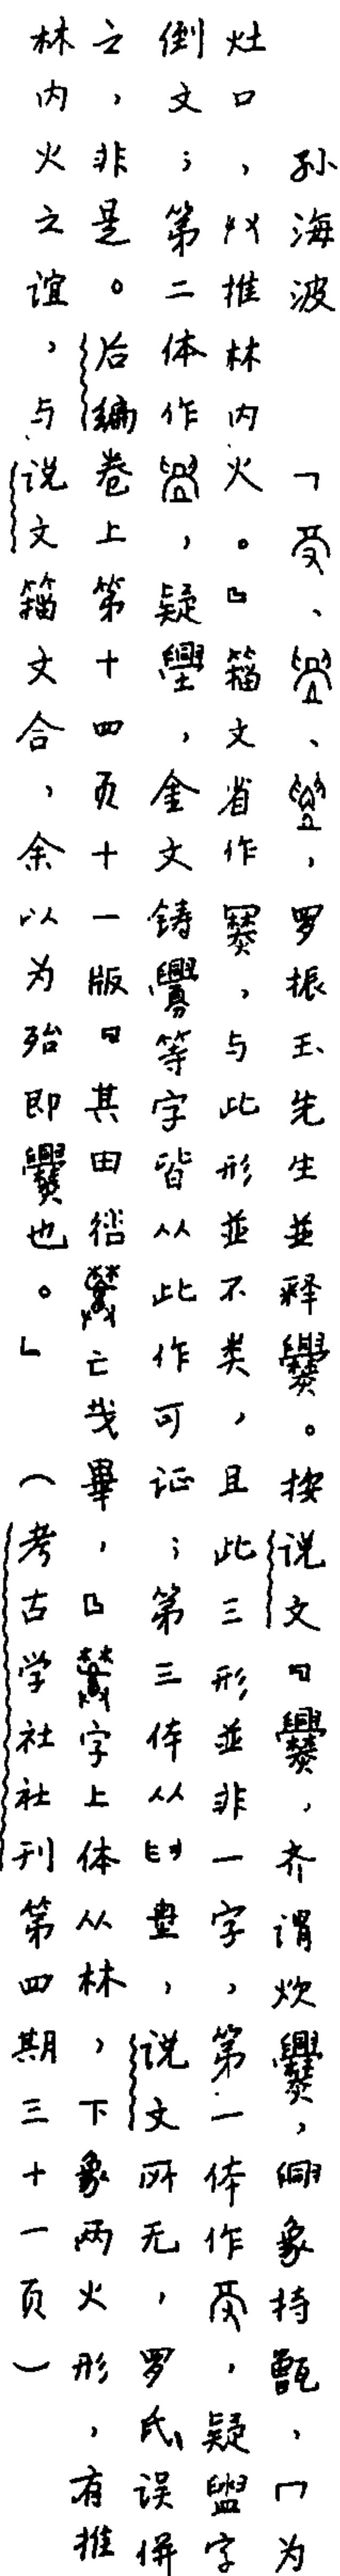 孙海波「、、，罗振玉先生並释爨。按说文『爨，齐谓炊爨，象持甑，冂为
灶口，廾推林内火。』籀文省作，与此形並不类，且此三形並非一字，第一体作，疑盥字
倒文；第二体作，疑，金文铸等字皆从此作可证；第三体从𦥑，说文所无，罗氏误併
之，非是。后编卷上第十四页十一版『其田亡𢦏畢，』字上体从林，下象两火形，有推
林内火之谊，与说文籀文合，余以为殆即爨也。」（考古学社社刊第四期三十一页）